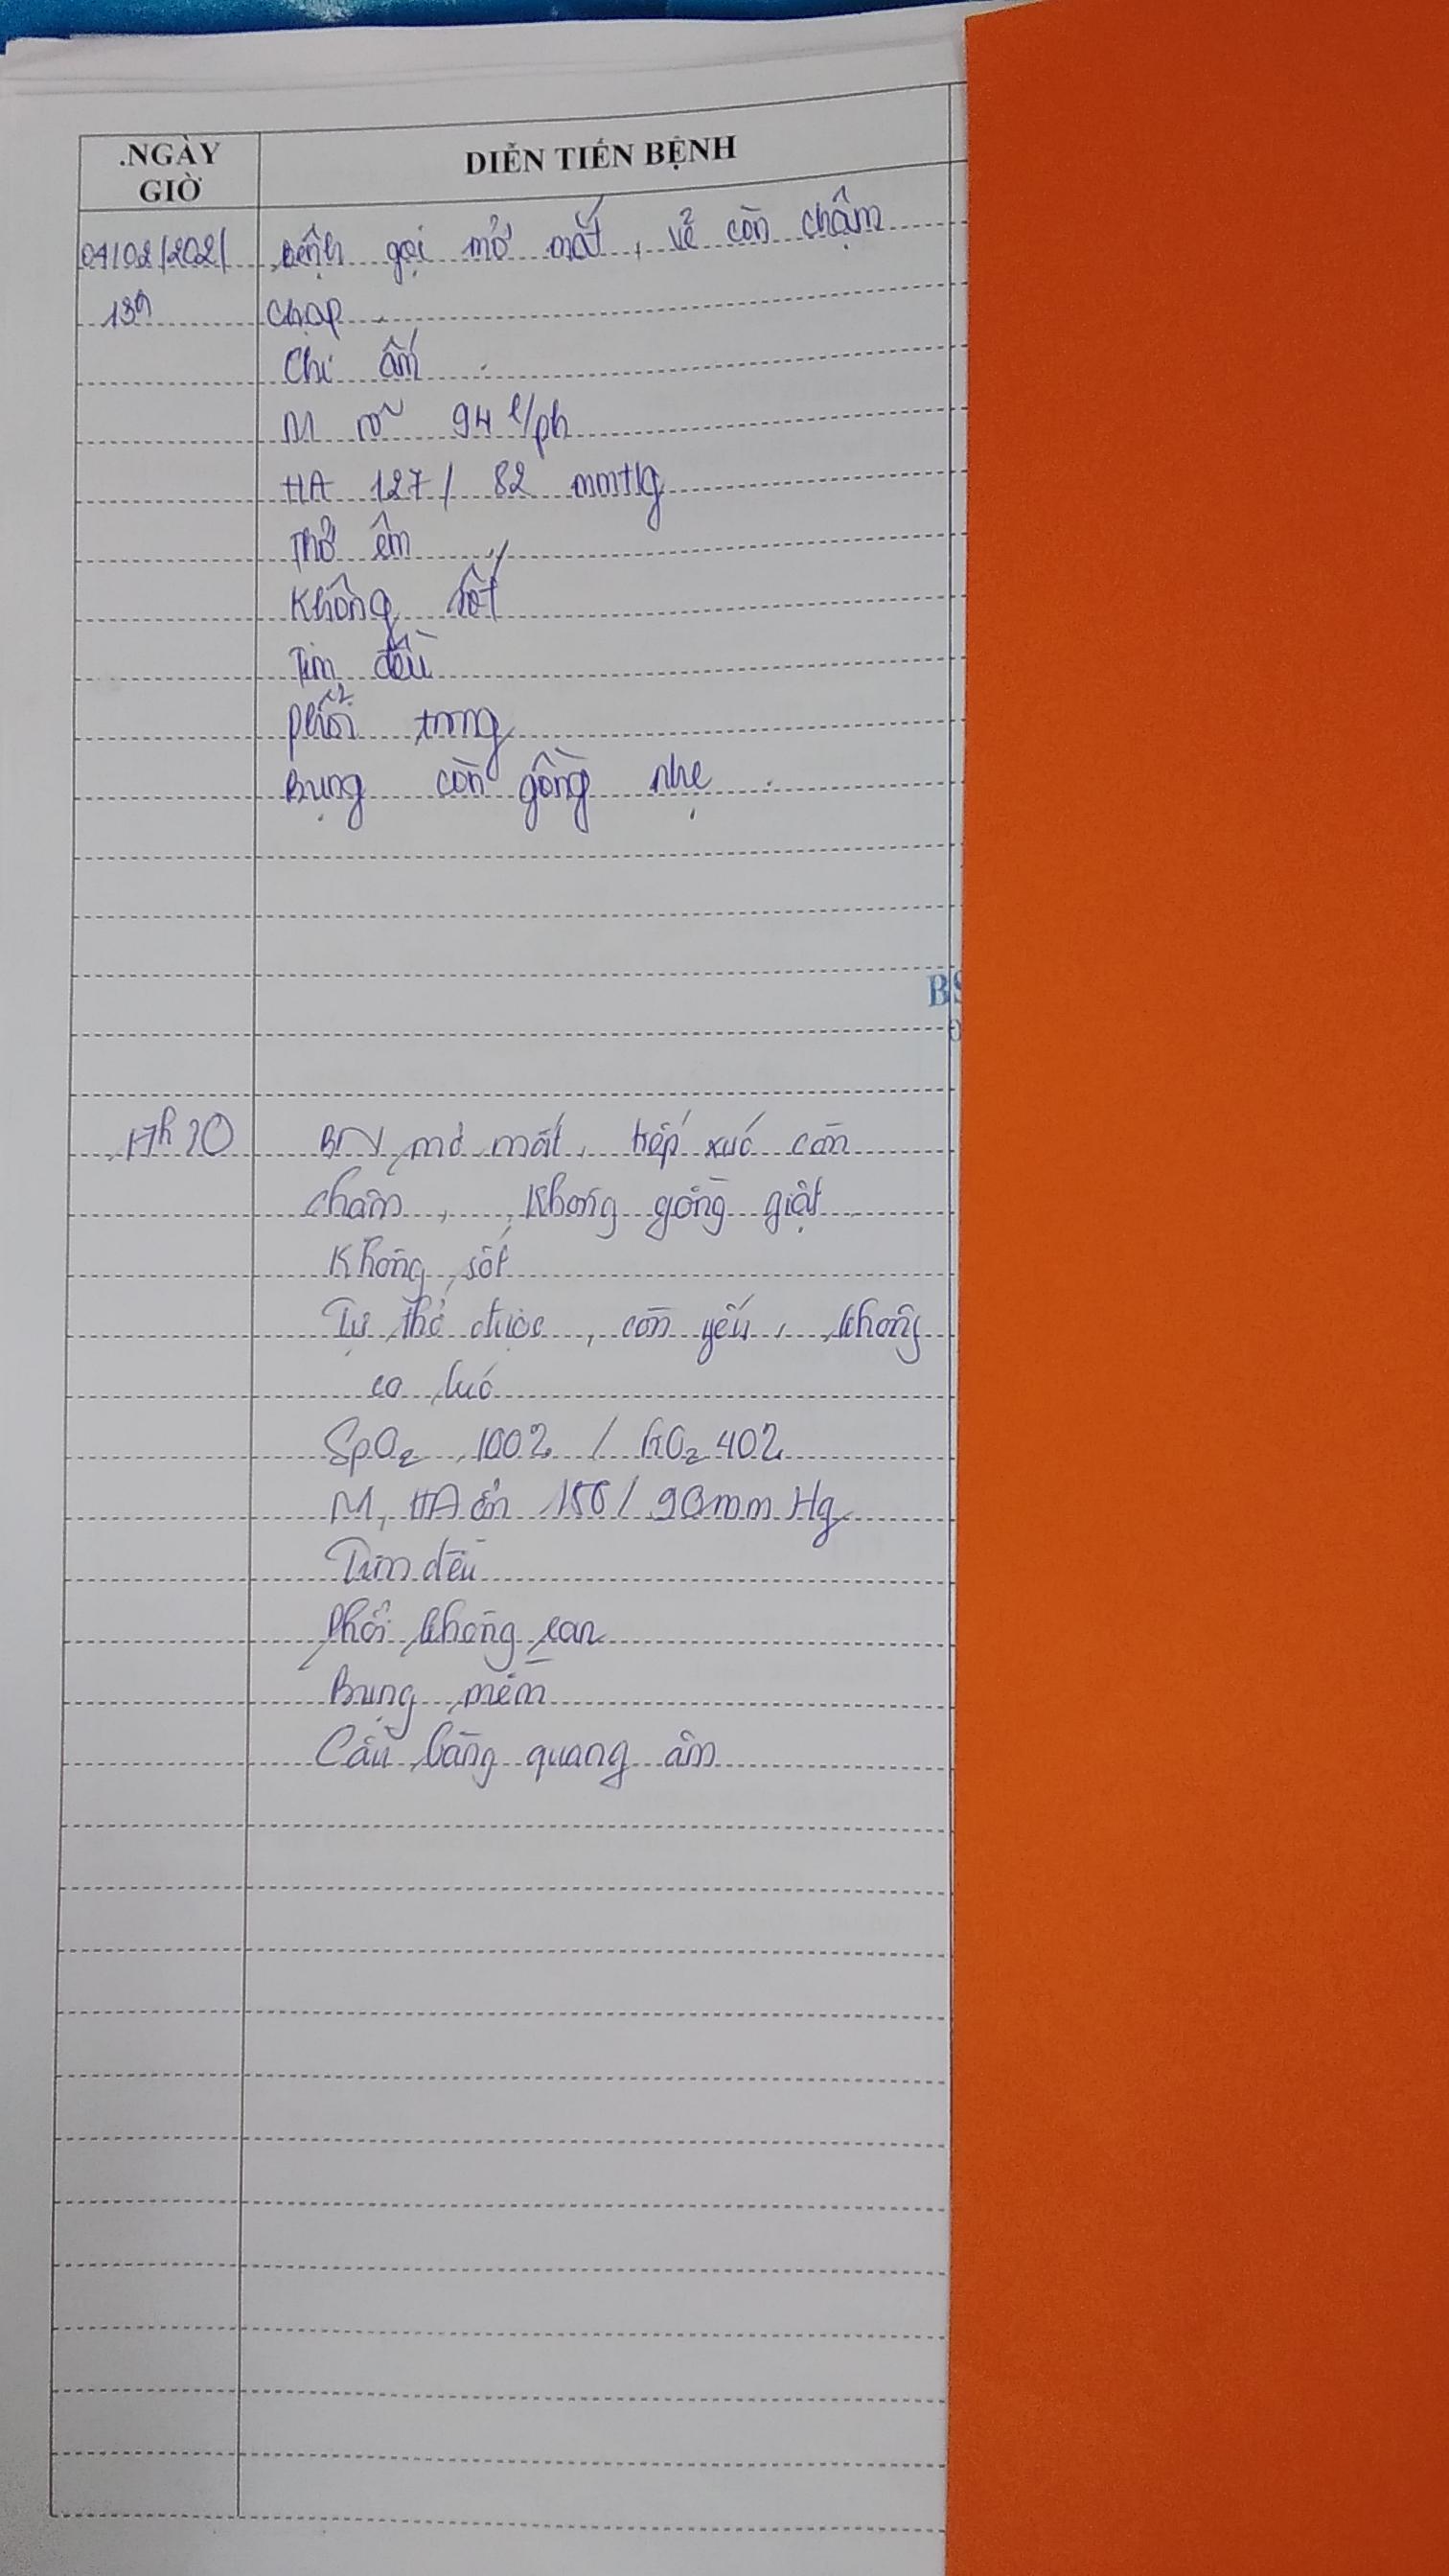 .NGÀY GIỜ
DIỄN TIẾN BỆNH
04/02/2021 bệnh gọi mở mắt, vẻ còn chậm
13h chạp.
Chi ấm.
M rõ 94 l/ph
HA 127/82 mmHg
Thở êm
Không sốt
Tim đều
Phổi trong
Bụng còn gồng nhẹ.
BS
17h30 BN mở mắt, tiếp xúc còn
chậm, không gồng giật
Không sốt
Tự thở được, còn yếu, không
co lúc
SpO2 100% / FiO2 40%
M, HA ổn 150/90mmHg
Tim đều
Phổi không ran
Bụng mềm
Cầu bàng quang âm